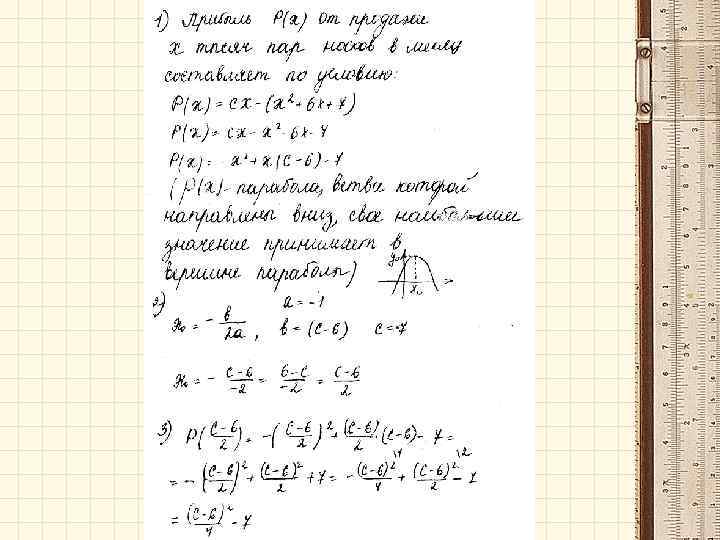 1) Прибыль P(x) от продажи
x тысяч пар носков в месяц
составляет по условию:
P(x) = cx - (x² + 6x + 7)
P(x) = cx - x² - 6x - 7
P(x) = - x² + x(c - 6) - 7
(P(x) - парабола, ветви которой
направлены вниз, свое наибольшее
значение принимает в
вершине параболы)
2) a = -1
x₀ = - b/2a, b = (c-6) c = -7
x₀ = - (c-6)/-2 = (6-c)/-2 = (c-6)/2
3) P((c-6)/2) = -((c-6)/2)² + (c-6)/2 · (c-6) - 7 =
= - ((c-6)/2)² + (c-6)²/2 + 7 = - (c-6)²/4 + (c-6)²/2 - 7
= (c-6)²/4 - 7